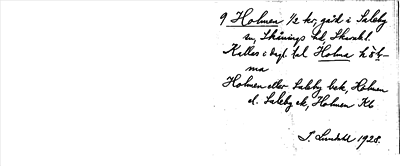 9 Holmen 1/2 kr, gård i Saleby
sn, Skånings hd, Skarabl.
Kallas i dagl. tal Holma
ma
Holmen eller Saleby bek, Holmen
el. Saleby ek, Holmen Kb
J. Lundahl 1928.